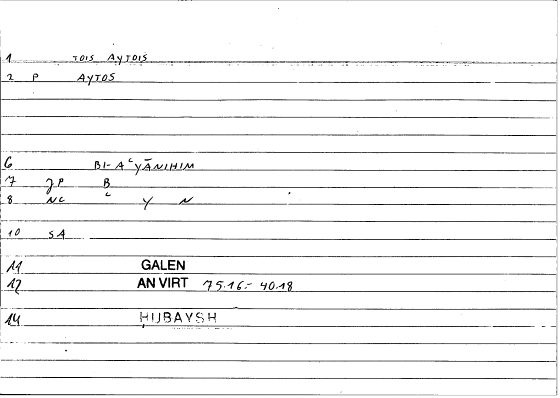 1 TOIS AYTOIS
2 P AYTOS
6 BI-AʿYĀNIHIM
7 JP B
8 NC ʿ Y N
10 SA
11 GALEN
12 AN VIRT 75.16.- 40.18
14 ḤUBAYSH